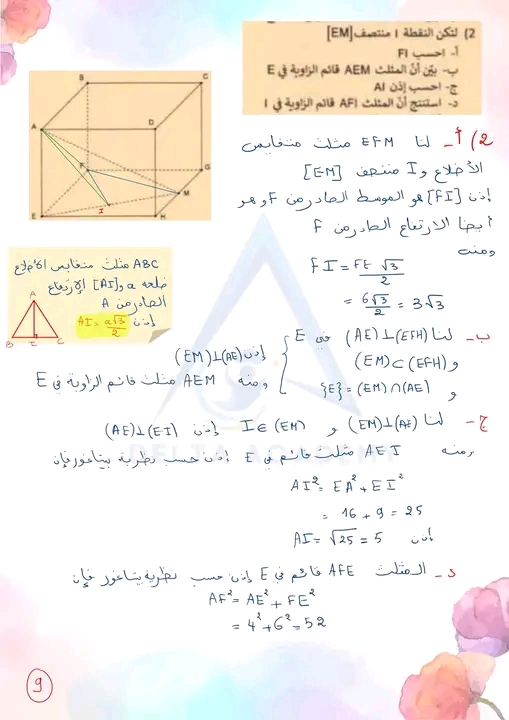 2) لتكن النقطة I منتصف [EM]
أ- احسب FI
ب- بيّن أنّ المثلث AEM قائم الزاوية في E
ج- احسب إذن AI
د- استنتج أنّ المثلث AFI قائم الزاوية في I
2/ أ- لنا EFM مثلث متقايس
الأضلاع و I منتصف [EM]
إذن [FI] هو الموسط الصادر من F وهو
أيضا الارتفاع الصادر من F
ومنه
FI = FE √3 / 2
= 6√3 / 2 = 3√3
B
C
A
D
F
G
M
I
E
H
ABC مثلث متقايس الأضلاع
ضلعه a و [AI] الإرتفاع
الصادر من A
إذن AI = a√3 / 2
A
B I C
ب- لنا (AE)⊥(EFH) في E
و (EM)⊂(EFH)
و {E} = (EM)∩(AE)
إذن (AE)⊥(EM)
ومنه AEM مثلث قائم الزاوية في E
ج- لنا (AE)⊥(EM) و I∈(EM) إذن (AE)⊥(EI)
ومنه AEI مثلث قائم في E إذن حسب نظرية بيتاغور فإن
AI² = EA² + EI²
= 16 + 9 = 25
إذن AI = √25 = 5
د- المثلث AFE قائم في E إذن حسب نظرية بيتاغور فإن
AF² = AE² + FE²
= 4² + 6² = 52
DELTA ACADEMY
9